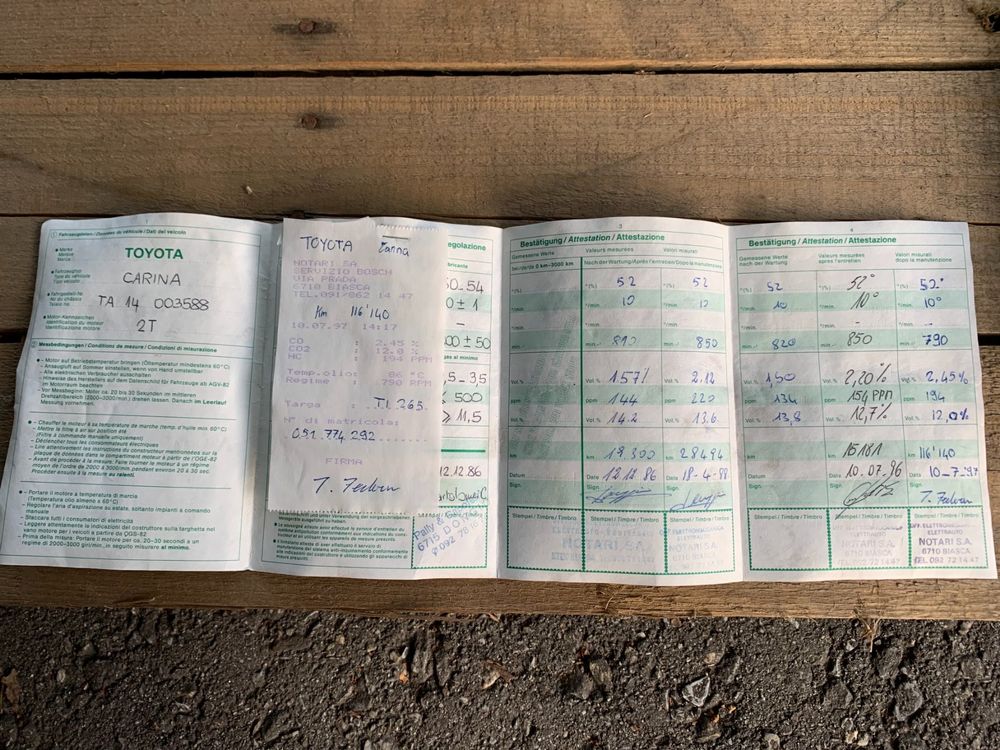 1 Fahrzeugdaten / Données du véhicule / Dati del veicolo
Marke
Marque
Marca
TOYOTA
Fahrzeugtyp
Type du véhicule
Tipo veicolo
CARINA
Fahrgestell-Nr.
No du châssis
Telaio no.
TA 14 003588
Motor-Kennzeichen
Identification du moteur
Identificazione motore
2T
Messbedingungen / Conditions de mesure / Condizioni di misurazione
Motor auf Betriebstemperatur bringen (Öltemperatur mindestens 60°C)
Ansaugluft auf Sommer einstellen, wenn von Hand umstellbar
Alle elektrischen Verbraucher ausschalten
Hinweise des Herstellers auf dem Datenschild für Fahrzeuge ab AGV-82
im Motorraum beachten
Vor Messbeginn: Motor ca. 20 bis 30 Sekunden im mittleren
Drehzahlbereich (2000–3000/min.) drehen lassen. Danach im Leerlauf
Messung vornehmen.
Chauffer le moteur à sa température de marche (temp. d'huile min. 60°C)
Mettre le filtre à air sur position été
(Filtre à commande manuelle uniquement)
Déclencher tous les consommateurs électriques
Lire attentivement les instructions du constructeur mentionnées sur la
plaque de données dans le compartiment moteur à partir de l'OGE-82
Avant de procéder à la mesure: Faire tourner le moteur à un régime
moyen de l'ordre de 2000 à 3000/min, pendant environ 20 à 30 sec
Procéder ensuite à la mesure au ralenti.
Portare il motore a temperatura di marcia
(Temperatura olio almeno a 60°C)
Regolare l'aria di aspirazione su estate, soltanto impianti a comando
manuale
Staccare tutti i consumatori di elettricità
Leggere attentamente le indicazioni del costruttore sulla targhetta nel
vano motore per i veicoli a partire da OGS-82
Prima della misura: Portare il motore per ca. 20–30 secondi a un
regime di 2000–3000 giri/min., in seguito misurare al minimo.
TOYOTA Carina
NOTARI SA
SERVIZIO BOSCH
VIA PRADE
6710 BIASCA
TEL.091/862 14 47
Km 116'140
10.07.97 14:17
CO : 2.45 %
CO2 : 12.0 %
HC : 194 PPM
Temp.olio: 86 °C
Regime : 790 RPM
Targa : TI 265.
N° di matricola:
051.774.292
FIRMA
egolazione
bricante
50.54
0 ± 1
–
00 ± 50
,5 – 3,5
≤ 500
≥ 11,5
12.12.86
3
Bestätigung / Attestation / Attestazione
Gemessene Werte Valeurs mesurées Valori misurati
Nach der Wartung/Après l'entretien/Dopo la manutenzione
°(%) 52 °(%) 52
°/min. 10 °/min. 12
°/min. – °/min. –
min.-¹ 810 min.-¹ 850
Vol.% 1.57% Vol.% 2.12
ppm 144 ppm 220
Vol.% 14.2 Vol.% 13.6
km 18300 km 28494
Datum 12.12.86 18-4-88
Sign. Sign.
Stempel / Timbre / Timbro Stempel / Timbre / Timbro
NOTARI S.A.
4
Bestätigung / Attestation / Attestazione
Gemessene Werte
nach der Wartung
Valeurs mesurées
après l'entretien
Valori misurati
dopo la manutenzione
°(%) 52 52° 52°
10 10° 10°
°/min. – – –
min.-¹ 820 850 790
Vol.% 1,50 2,20% 2,45%
ppm 134 154 PPM 194
Vol.% 13,8 12,7% 12,0%
km 15181 km 116'140
Datum 10.07.96 10-7-97
Sign.
Stempel / Timbre / Timbro Stempel / Timbre / Timbro
ELETTRAUTO
NOTARI S.A.
6710 BIASCA
TEL. 092 72 14 47
ELETTRAUTO
NOTARI S.A.
6710 BIASCA
TEL. 092 72 14 47